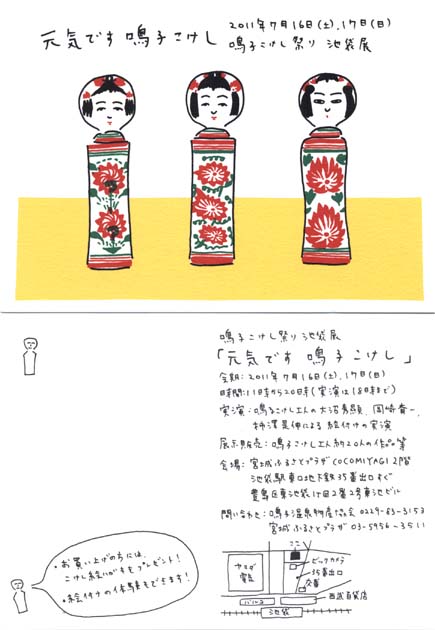 元気です 鳴子こけし
2011年7月16日(土),17日(日)
鳴子こけし祭り 池袋展
鳴子こけし祭り 池袋展
「元気です 鳴子こけし」
会期:2011年7月16日(土),17日(日)
時間:11時から20時(実演は18時まで)
実演:鳴子こけし工人の大沼秀顯、岡崎斉一、
柿澤是伸による絵付けの実演
展示販売:鳴子こけし工人約20人の作品等
会場:宮城ふるさとプラザ COCOMIYAGI 2階
池袋駅東口地下鉄35番出口すぐ
豊島区東池袋1丁目2番2号東池ビル
問い合わせ:鳴子温泉物産協会 0229-83-3153
宮城ふるさとプラザ 03-5956-3511
・お買い上げの方には、
こけし絵はがきをプレゼント!
・絵付けの体験もできます!
ここ
ビックカメラ
35番出口
交番
ヤマダ
電気
パルコ
西武百貨店
池袋